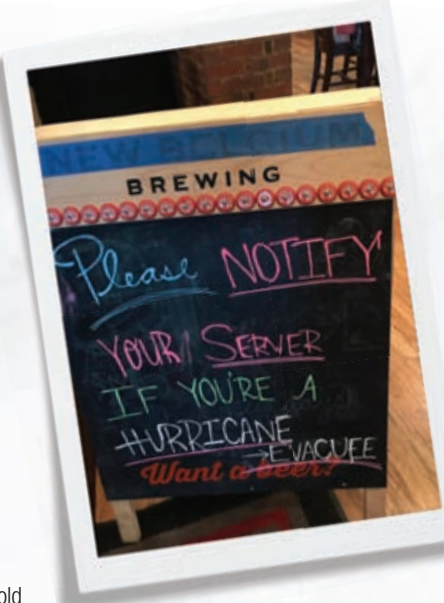 NEW BELGIUM
BREWING
Please NOTIFY
YOUR SERVER
IF YOU'RE A
HURRICANE
→EVACUEE
Want a beer?
old